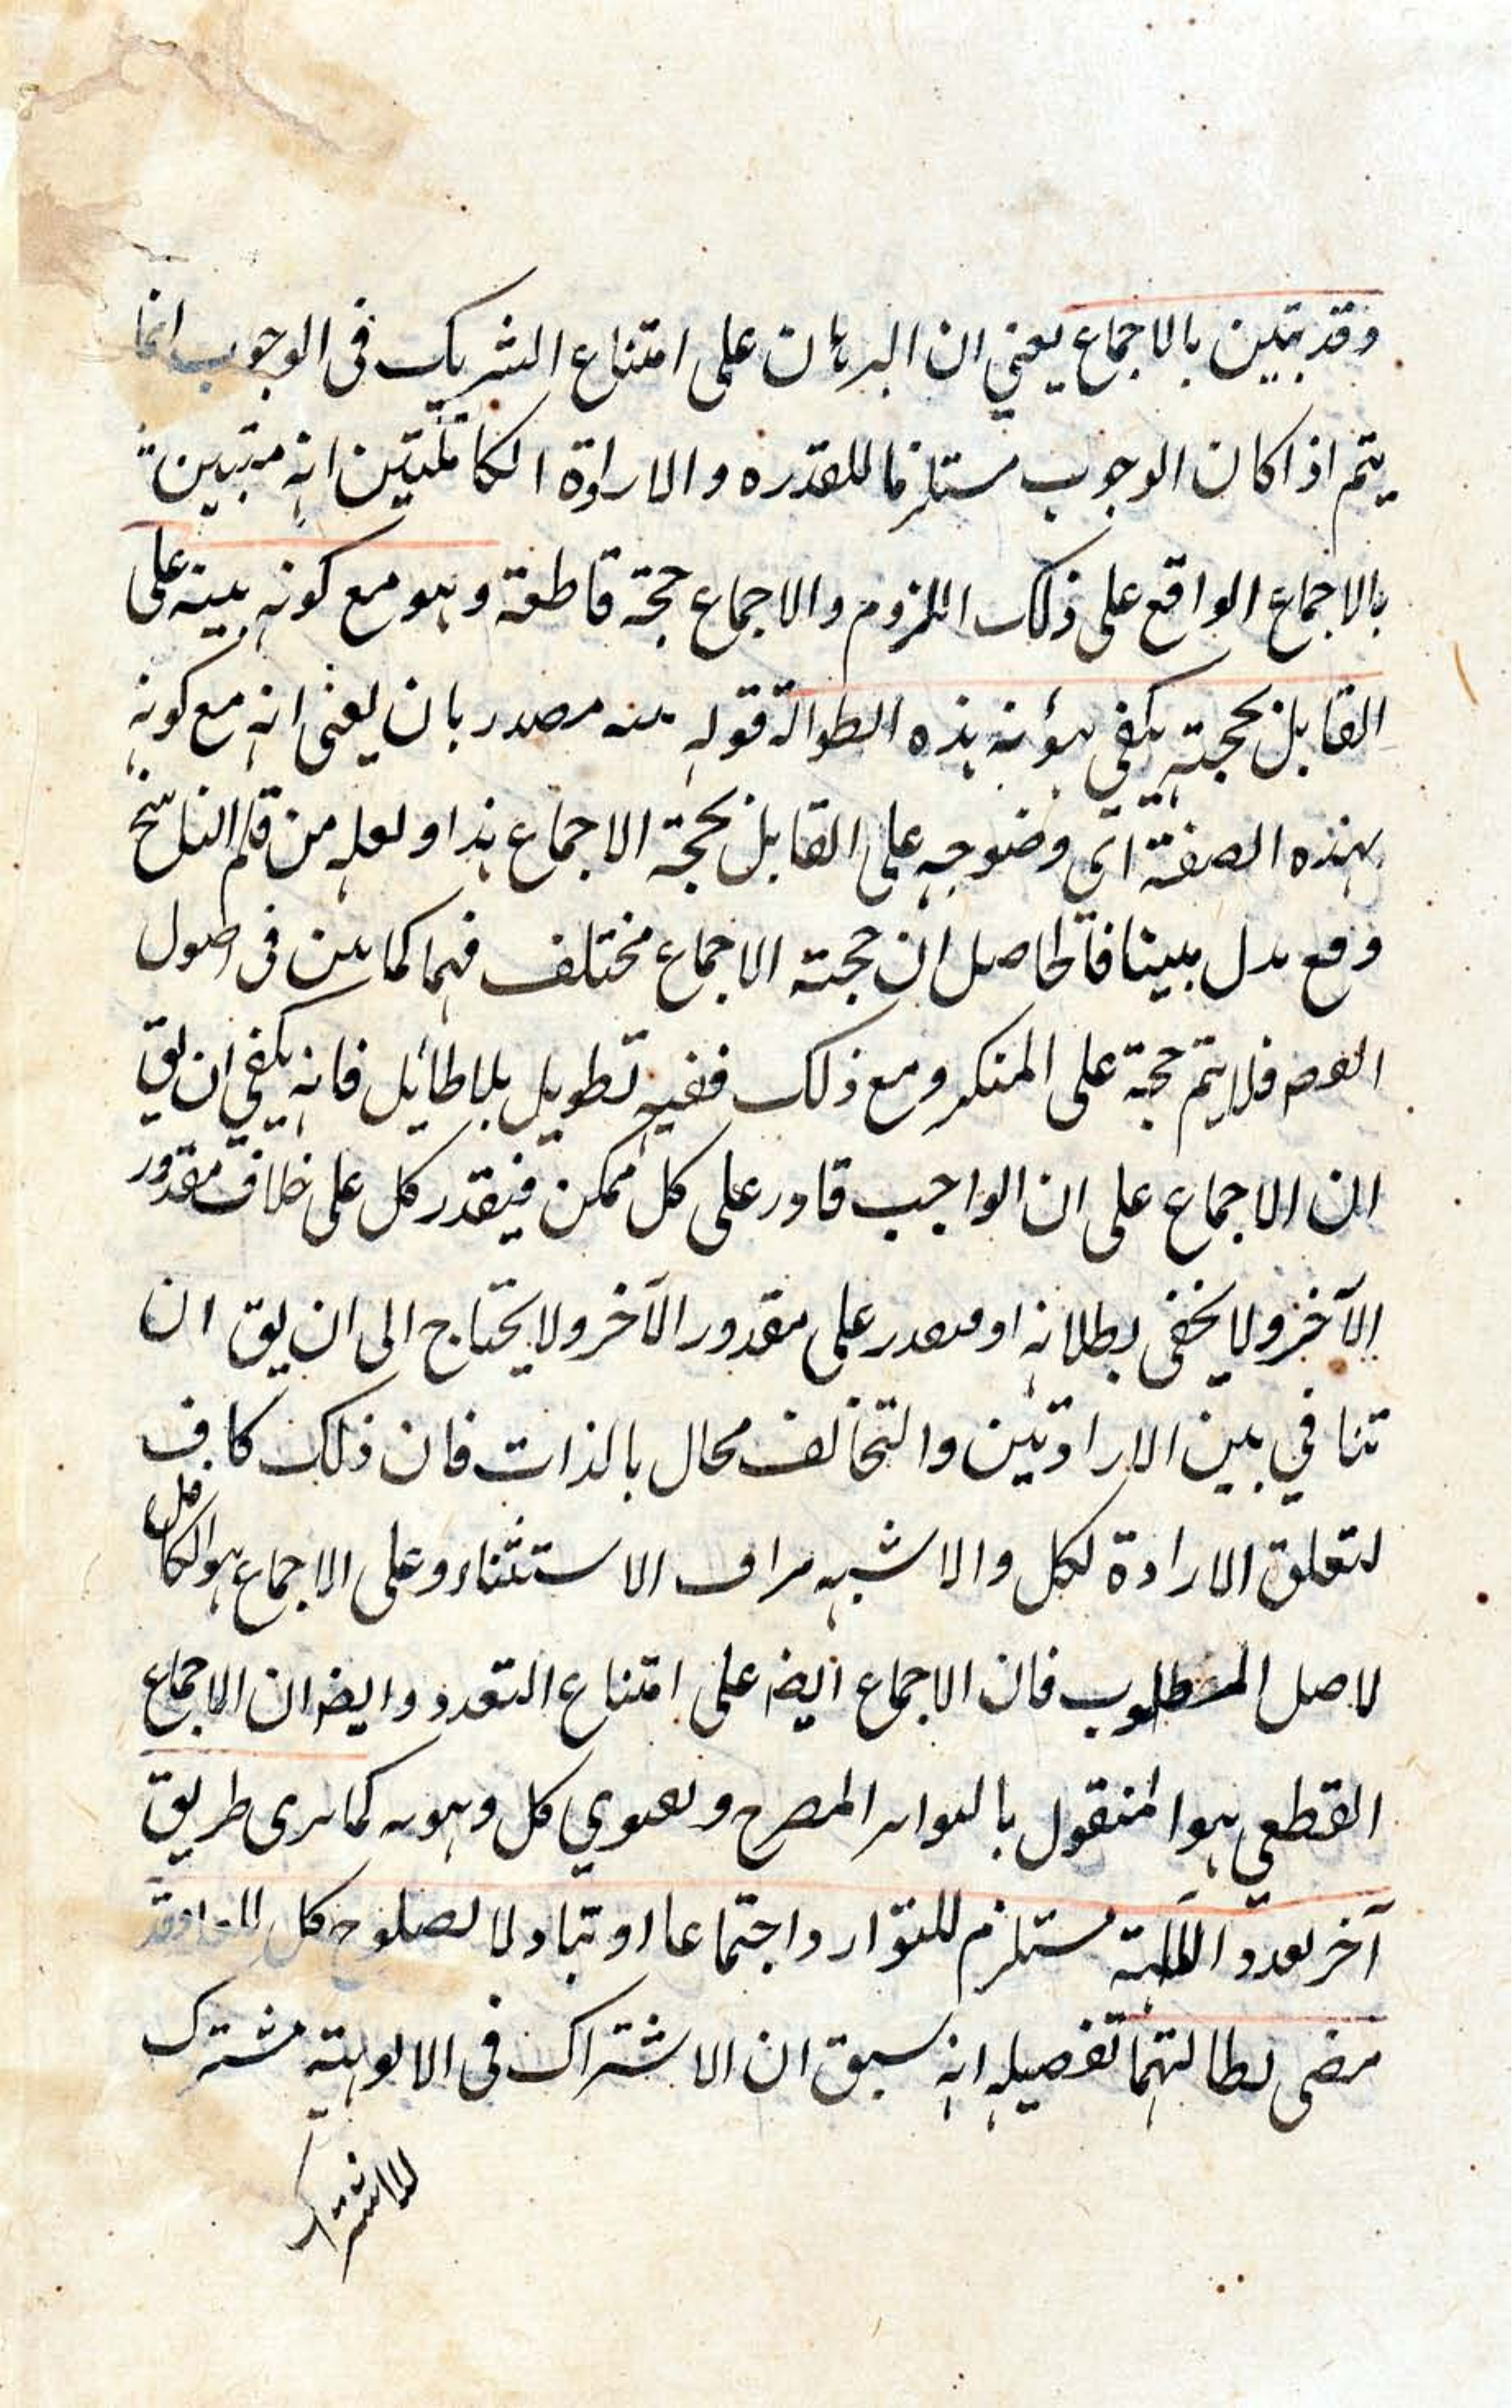 وقد تبين بالاجماع يعني ان البرهان على امتناع الشريك في الوجوب انما
يتم اذا كان الوجوب مستلزما للقدره والارادة الكاملتين انه مبتبين
بالاجماع الواقع على ذلك اللزوم والاجماع حجة قاطعة وهو مع كونه بينه على
القابل بحجته يكفي مؤنة هذه الطوالة قوله بينه مصدر بان يعني انه مع كونه
بهذه الصفة اى وضوحه على القابل بحجة الاجماع هذا ولعله من قلم الناسخ
وقع بدل مبينا فالحاصل ان حجته الاجماع مختلف فيها كما بين في اصول
الفقه فلا يتم حجة على المنكر ومع ذلك ففيه تطويل بلا طائل فانه يكفي ان يق
ان الاجماع على ان الواجب قادر على كل ممكن فيقدر كل على خلاف مقدور
الآخر ولا يخفى بطلانه او يقدر على مقدور الآخر ولا يحتاج الى ان يق ان
تنافي بين الارادتين والتخالف محال بالذات فان ذلك كاف
لتعلق الارادة لكل والاشبه الاستثناء وعلى الاجماع هو الكامل
لاصل المطلوب فان الاجماع ايضا على امتناع التعدد وايضا ان الاجماع
القطعي هو المنقول بالتواتر المصرح كل وهو كما ترى طريق
آخر تعدد الآلهة مستلزم للتوارد اجتماعا او تبادلا لصلوح كل وقد
مضى بطالتهما تفصيله انه سبق ان الاشتراك في الالوهية مشترك
للاشتراك